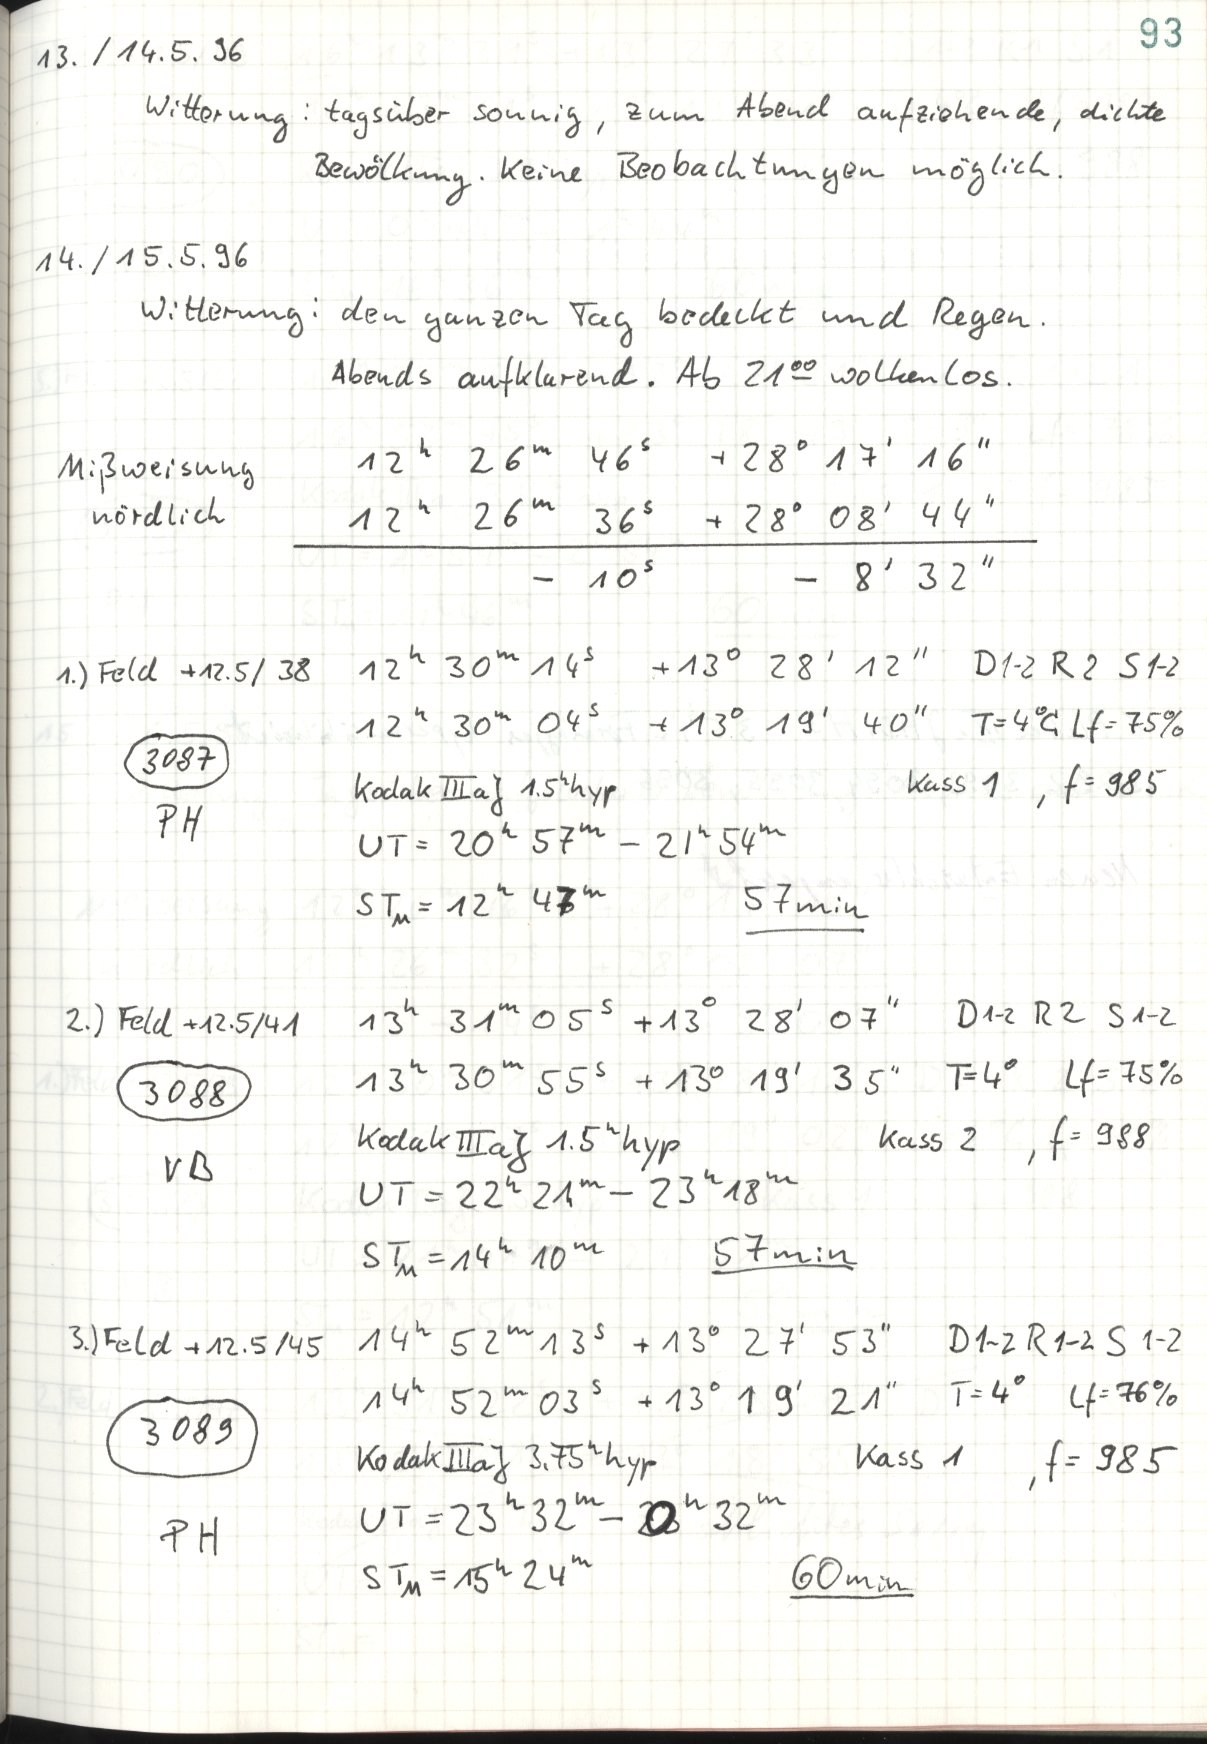 93
13./14.5.96
Witterung: tagsüber sonnig, zum Abend aufziehende, dichte
Bewölkung. Keine Beobachtungen möglich.
14./15.5.96
Witterung: den ganzen Tag bedeckt und Regen.
Abends aufklarend. Ab 21⁰⁰ wolkenlos.
Mißweisung 12ʰ 26ᵐ 46ˢ +28° 17' 16"
nördlich 12ʰ 26ᵐ 36ˢ +28° 08' 44"
- 10ˢ - 8' 32"
1.) Feld +12.5/38 12ʰ 30ᵐ 14ˢ +13° 28' 12" D1-2 R2 S1-2
12ʰ 30ᵐ 04ˢ +13° 19' 40" T=4°C, Lf=75%
3087 Kodak IIIaJ 1.5ʰhyp Kass 1, f=985
PH UT = 20ʰ 57ᵐ - 21ʰ 54ᵐ
STM = 12ʰ 47ᵐ 57min
2.) Feld +12.5/41 13ʰ 31ᵐ 05ˢ +13° 28' 07" D1-2 R2 S1-2
3088 13ʰ 30ᵐ 55ˢ +13° 19' 35" T=4° Lf=75%
Kodak IIIaJ 1.5ʰhyp Kass 2, f=988
VB UT = 22ʰ 21ᵐ - 23ʰ 18ᵐ
STM = 14ʰ 10ᵐ 57min
3.) Feld +12.5/45 14ʰ 52ᵐ 13ˢ +13° 27' 53" D1-2 R1-2 S1-2
14ʰ 52ᵐ 03ˢ +13° 19' 21" T=4° Lf=76%
3089 Kodak IIIaJ 3.75ʰhyp Kass 1, f=985
PH UT = 23ʰ 32ᵐ - 0ʰ 32ᵐ
STM = 15ʰ 24ᵐ 60min